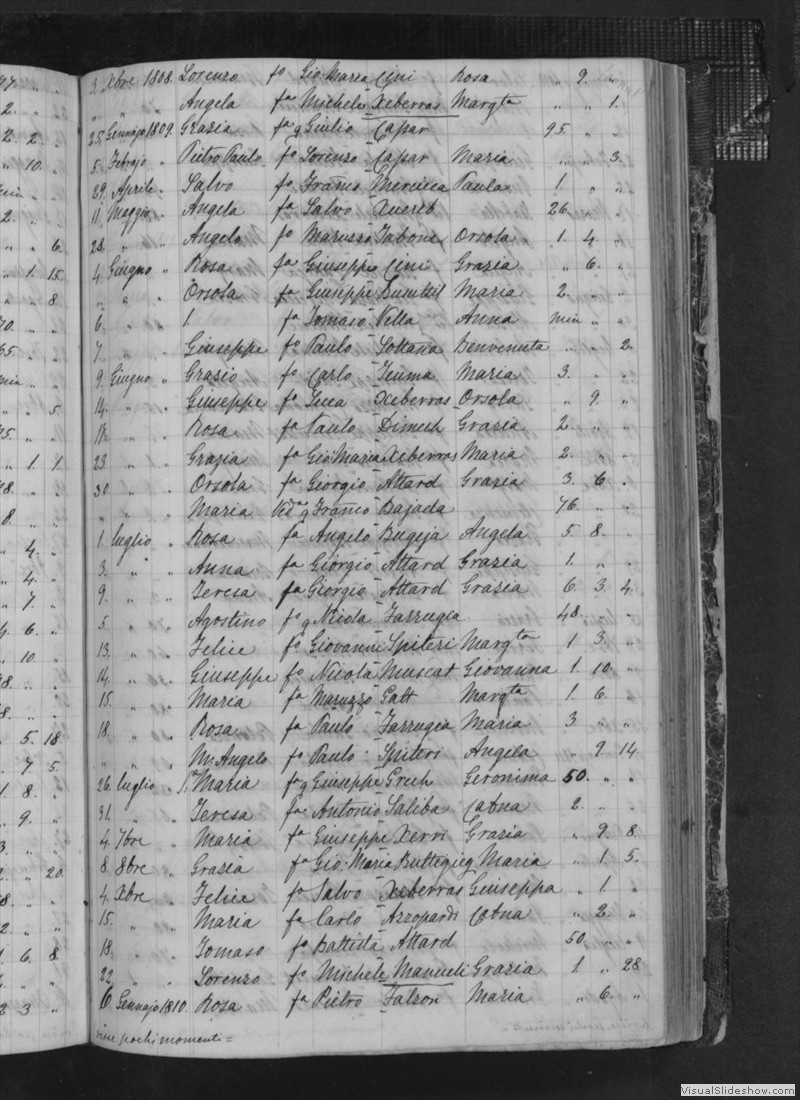 3. Xbre 1808. Lorenzo fo Gio Maria Cini Rosa " 9. "
" " " Angela fa Michele Xeberras Margta " " 1.
25. Gennajo 1809. Grazia fa q Giulio Caxar 95. " "
5. Febrajo " Pietro Paulo fo Lorenzo Caxar Maria " " 3.
29. Aprile " Salvo fo Franco Mercieca Paula 1. " "
11. Maggio " Angela fa Salvo Xuereb 26. " "
28. " " Angelo fo Maruzzo Tabone Orsola 1. 4. "
4. Giugno " Rosa fa Giuseppe Cini Grazia " 6. "
" " " Orsola fa Giuseppe Maria 2. " "
6. " " 1 fa Tomaso Vella Anna min " "
7. " " Giuseppe fo Paulo Sultana Benvenuta " " 2.
9. Giugno " Grazio fo Carlo Teuma Maria 3. " "
14. " " Giuseppe fo Luca Xeberras Orsola " 9. "
18. " " Rosa fa Paulo Dimech Grazia 2. " "
23. " " Grazia fa Gio: Maria Xeberras Maria 2. " "
30. " " Orsola fa Giorgio Attard Grazia 3. 6. "
" " " Maria Veda q Franco Bajada 76. " "
1. luglio " Rosa fa Angelo Bugeja Angela 5. 8. "
3. " " Anna fa Giorgio Attard Grazia 1. " "
9. " " Teresa fa Giorgio Attard Grazia 6. 3. 4.
5. " " Agostino fo q Nicola Farrugia 48. " "
13. " " Felice fo Giovanni Spiteri Margta 1 3. "
14. " " Giuseppe fo Nicola Muscat Giovanna 1. 10. "
15. " " Maria fa Maruzzo Gatt Margta 1. 6. "
18. " " Rosa fa Paulo Farrugia Maria 3 " "
" " " Ml. Angelo fo Paulo Spiteri Angela " 9 14
26. luglio " Maria fa q Giuseppe Grech Geronima 50. " "
31. " " Teresa fa Antonio Saliba Catna 2. " "
4. 7bre " Maria fa Giuseppe Xerri Grazia " 9. 8.
8. 8bre " Grazia fa Gio: Maria Buttegieg Maria " 1. 5.
4. Xbre " Felice fo Salvo Xeberras Giuseppa " 1. "
15. " " Maria fa Carlo Azzopardi Catna " 2. "
18. " " Tomaso fo Battista Attard 50. " "
22. " " Lorenzo fo Michele Manueli Grazia 1. " 28
6 Gennajo 1810. Rosa fa Pietro Falzon Maria " 6. "
visse pochi momenti =
VisualSlideshow.com